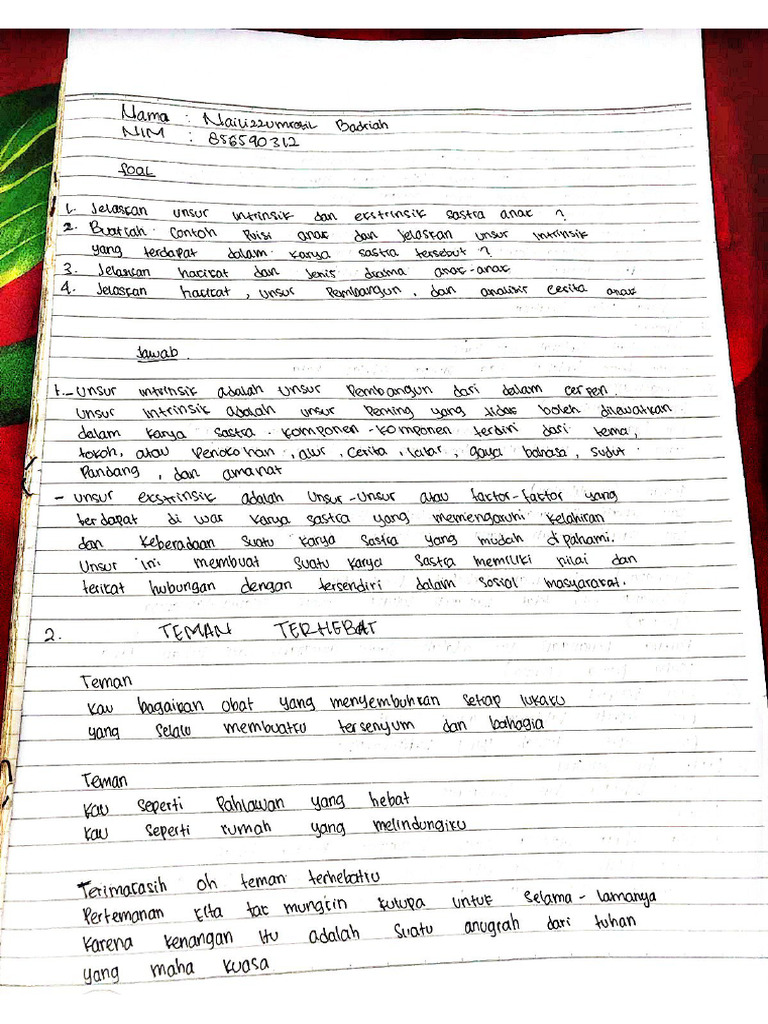 Nama : Nailizzumrotil Badriah
NIM : 856590312
Soal
1. Jelaskan unsur intrinsik dan ekstrinsik sastra anak ?
2. Buatlah Contoh Puisi anak dan jelaskan unsur intrinsik
yang terdapat dalam karya sastra tersebut ?
3. Jelaskan hakikat dan Jenis drama anak-anak
4. Jelaskan hakikat, unsur Pembangun, dan analisis cerita anak
Jawab
1. - Unsur intrinsik adalah unsur Pembangun dari dalam cerpen.
Unsur intrinsik adalah unsur Penting yang tidak boleh dilewatkan
dalam karya sastra. komponen-komponen terdiri dari tema,
tokoh, atau Penokohan, alur, cerita, latar, gaya bahasa, sudut
Pandang, dan amanat
- Unsur ekstrinsik adalah unsur-unsur atau factor-factor yang
terdapat di luar karya sastra yang memengaruhi kelahiran
dan keberadaan suatu karya sastra yang mudah dipahami.
Unsur ini membuat suatu karya sastra memiliki nilai dan
terikat hubungan dengan tersendiri dalam sosial masyarakat.
2. TEMAN TERHEBAT
Teman
Kau bagaikan obat yang menyembuhkan setiap lukaku
yang selalu membuatku tersenyum dan bahagia
Teman
Kau seperti Pahlawan yang hebat
Kau seperti rumah yang melindungiku
Terimakasih oh teman terhebatku
Pertemanan kita tak mungkin kulupa untuk selama-lamanya
Karena kenangan itu adalah suatu anugrah dari tuhan
yang maha kuasa